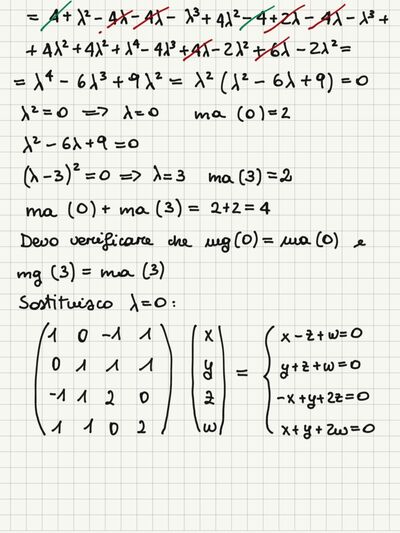 = 4 + λ² - 4λ - 4λ - λ³ + 4λ² - 4 + 2λ - 4λ - λ³ +
+ 4λ² + 4λ² + λ⁴ - 4λ³ + 4λ - 2λ² + 6λ - 2λ² =
= λ⁴ - 6λ³ + 9λ² = λ² (λ² - 6λ + 9) = 0
λ² = 0 => λ = 0 ma (0) = 2
λ² - 6λ + 9 = 0
(λ - 3)² = 0 => λ = 3 ma (3) = 2
ma (0) + ma (3) = 2 + 2 = 4
Devo verificare che mg (0) = ma (0) e
mg (3) = ma (3)
Sostituisco λ = 0 :
1 0 -1 1 x x - z + w = 0
0 1 1 1 y y + z + w = 0
-1 1 2 0 z = -x + y + 2z = 0
1 1 0 2 w x + y + 2w = 0